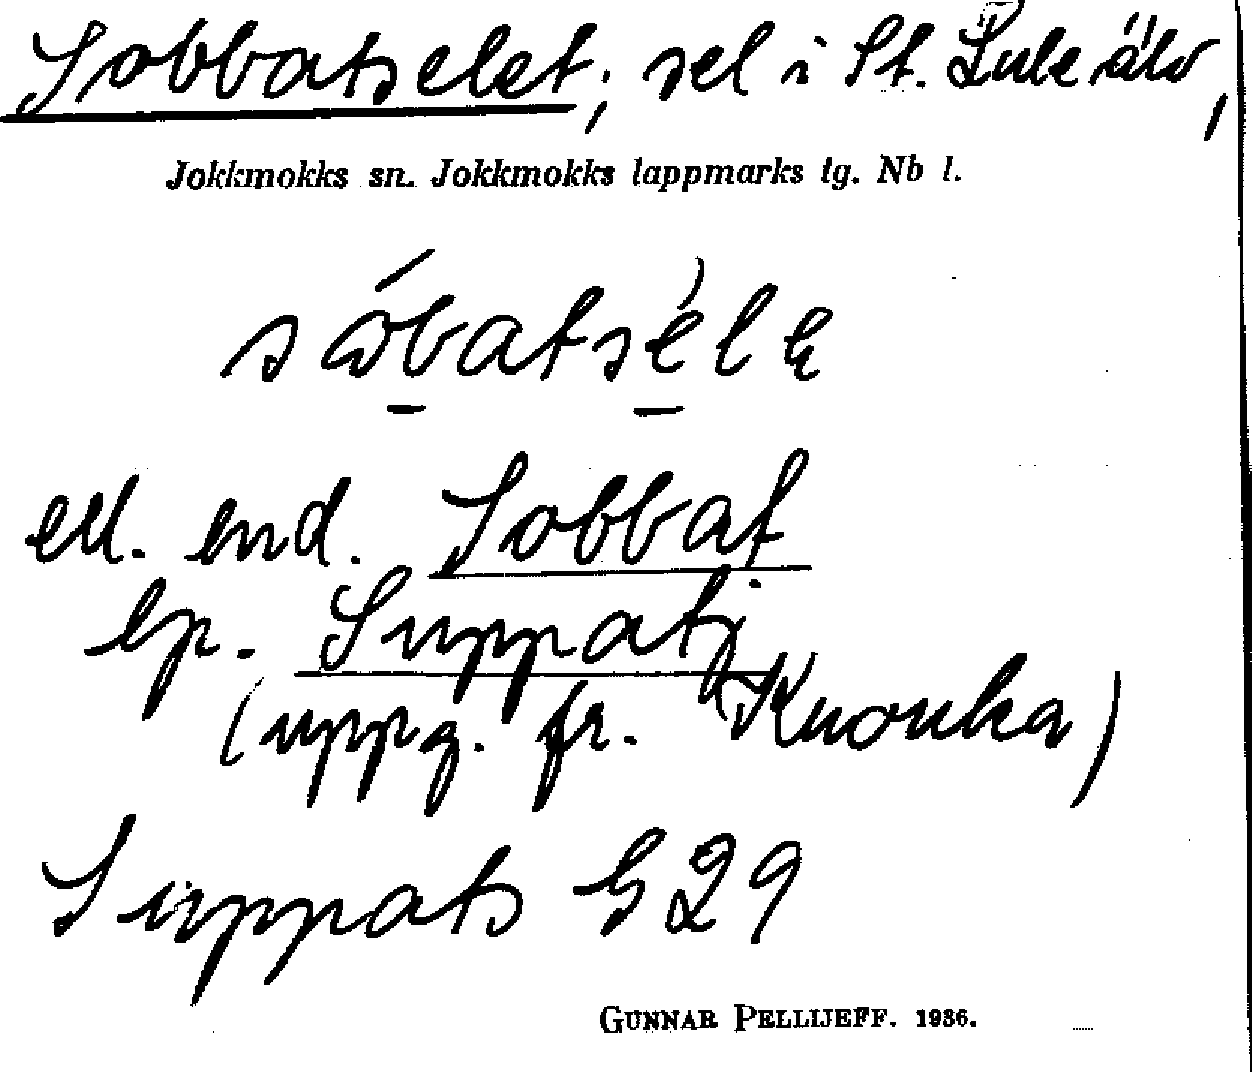 Sobbatselet; sel i St. Lule älv,
Jokkmokks sn. Jokkmokks lappmarks tg. Nb l.
ell. end. Sobbat
lp. Suppatj
(uppg. fr. Knouka)
Suppats G 29
GUNNAR PELLIJEFF. 1936.